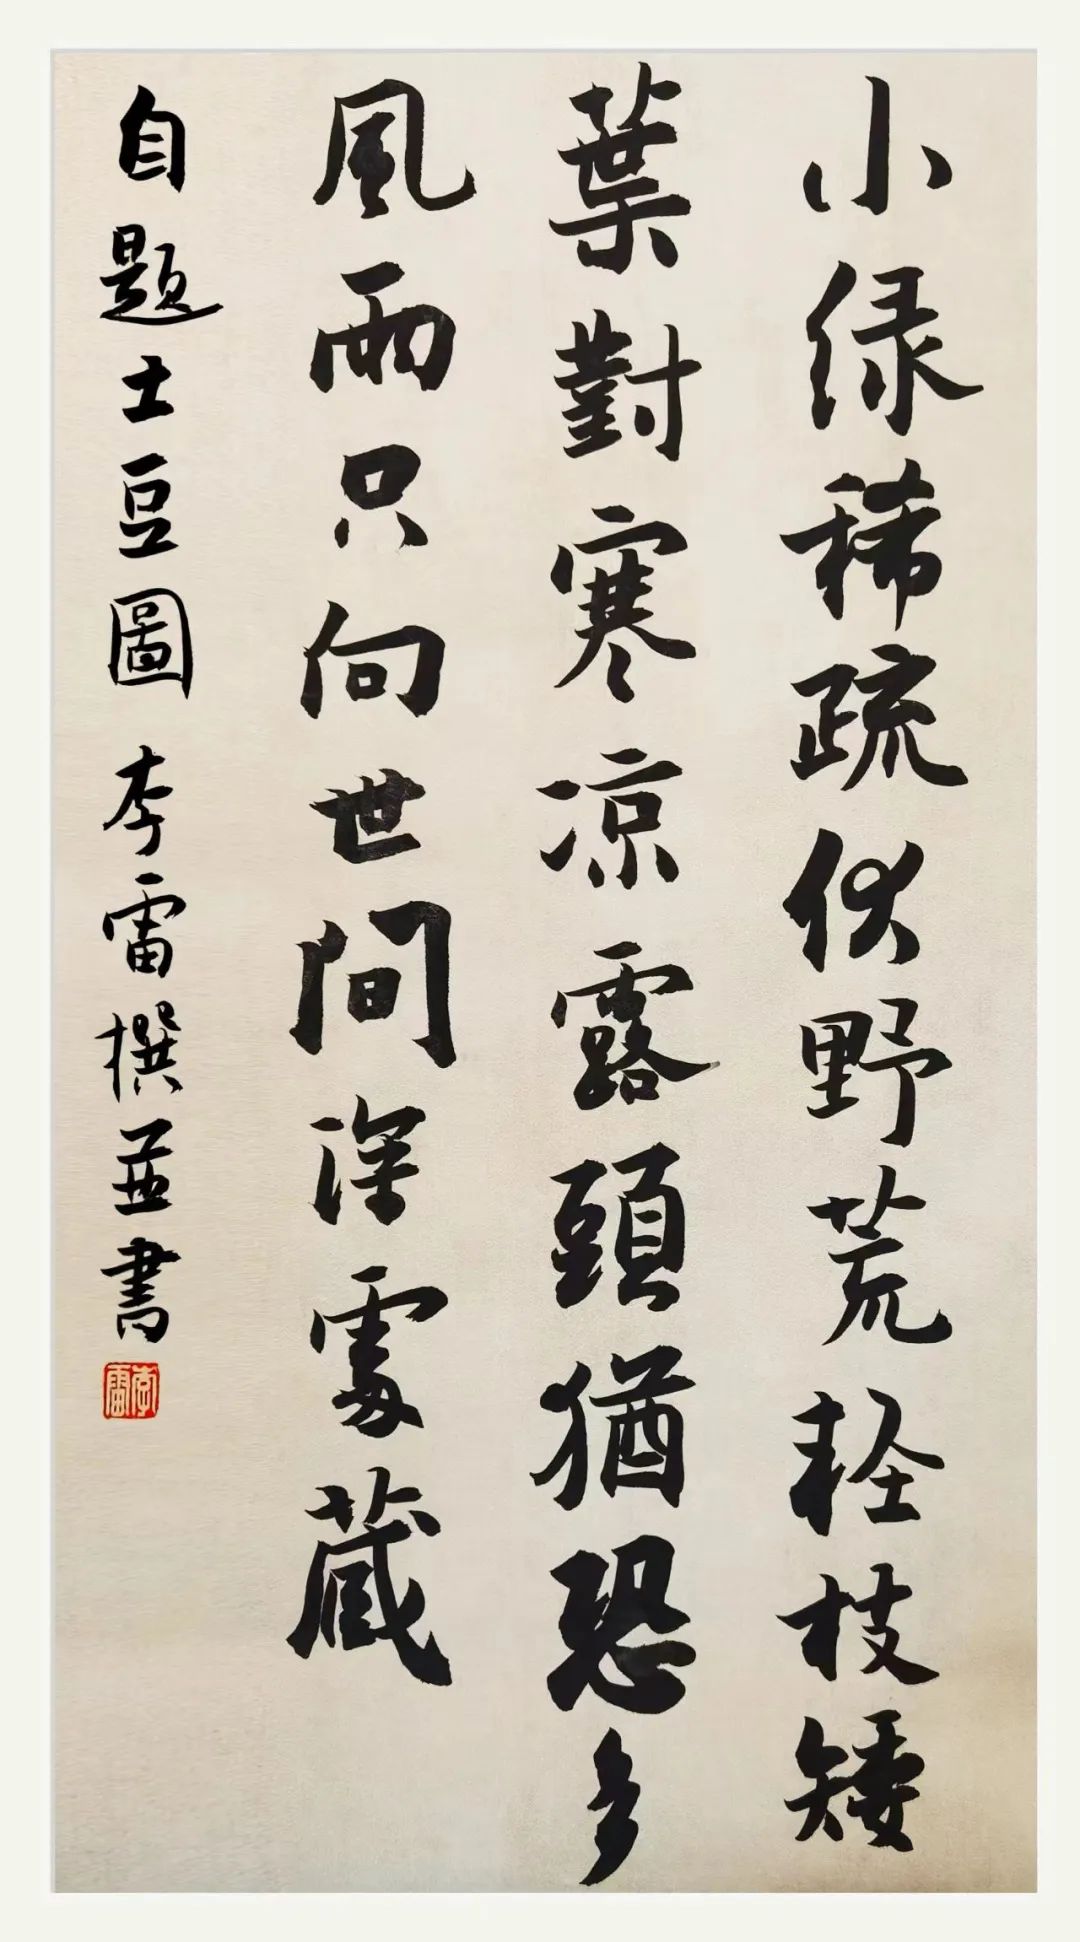 小绿稀疏伏野荒輕枝矮
葉對寒凉露頭猶恐多
風雨只向世間深處藏
自題土豆圖 李雷撰並書
李雷